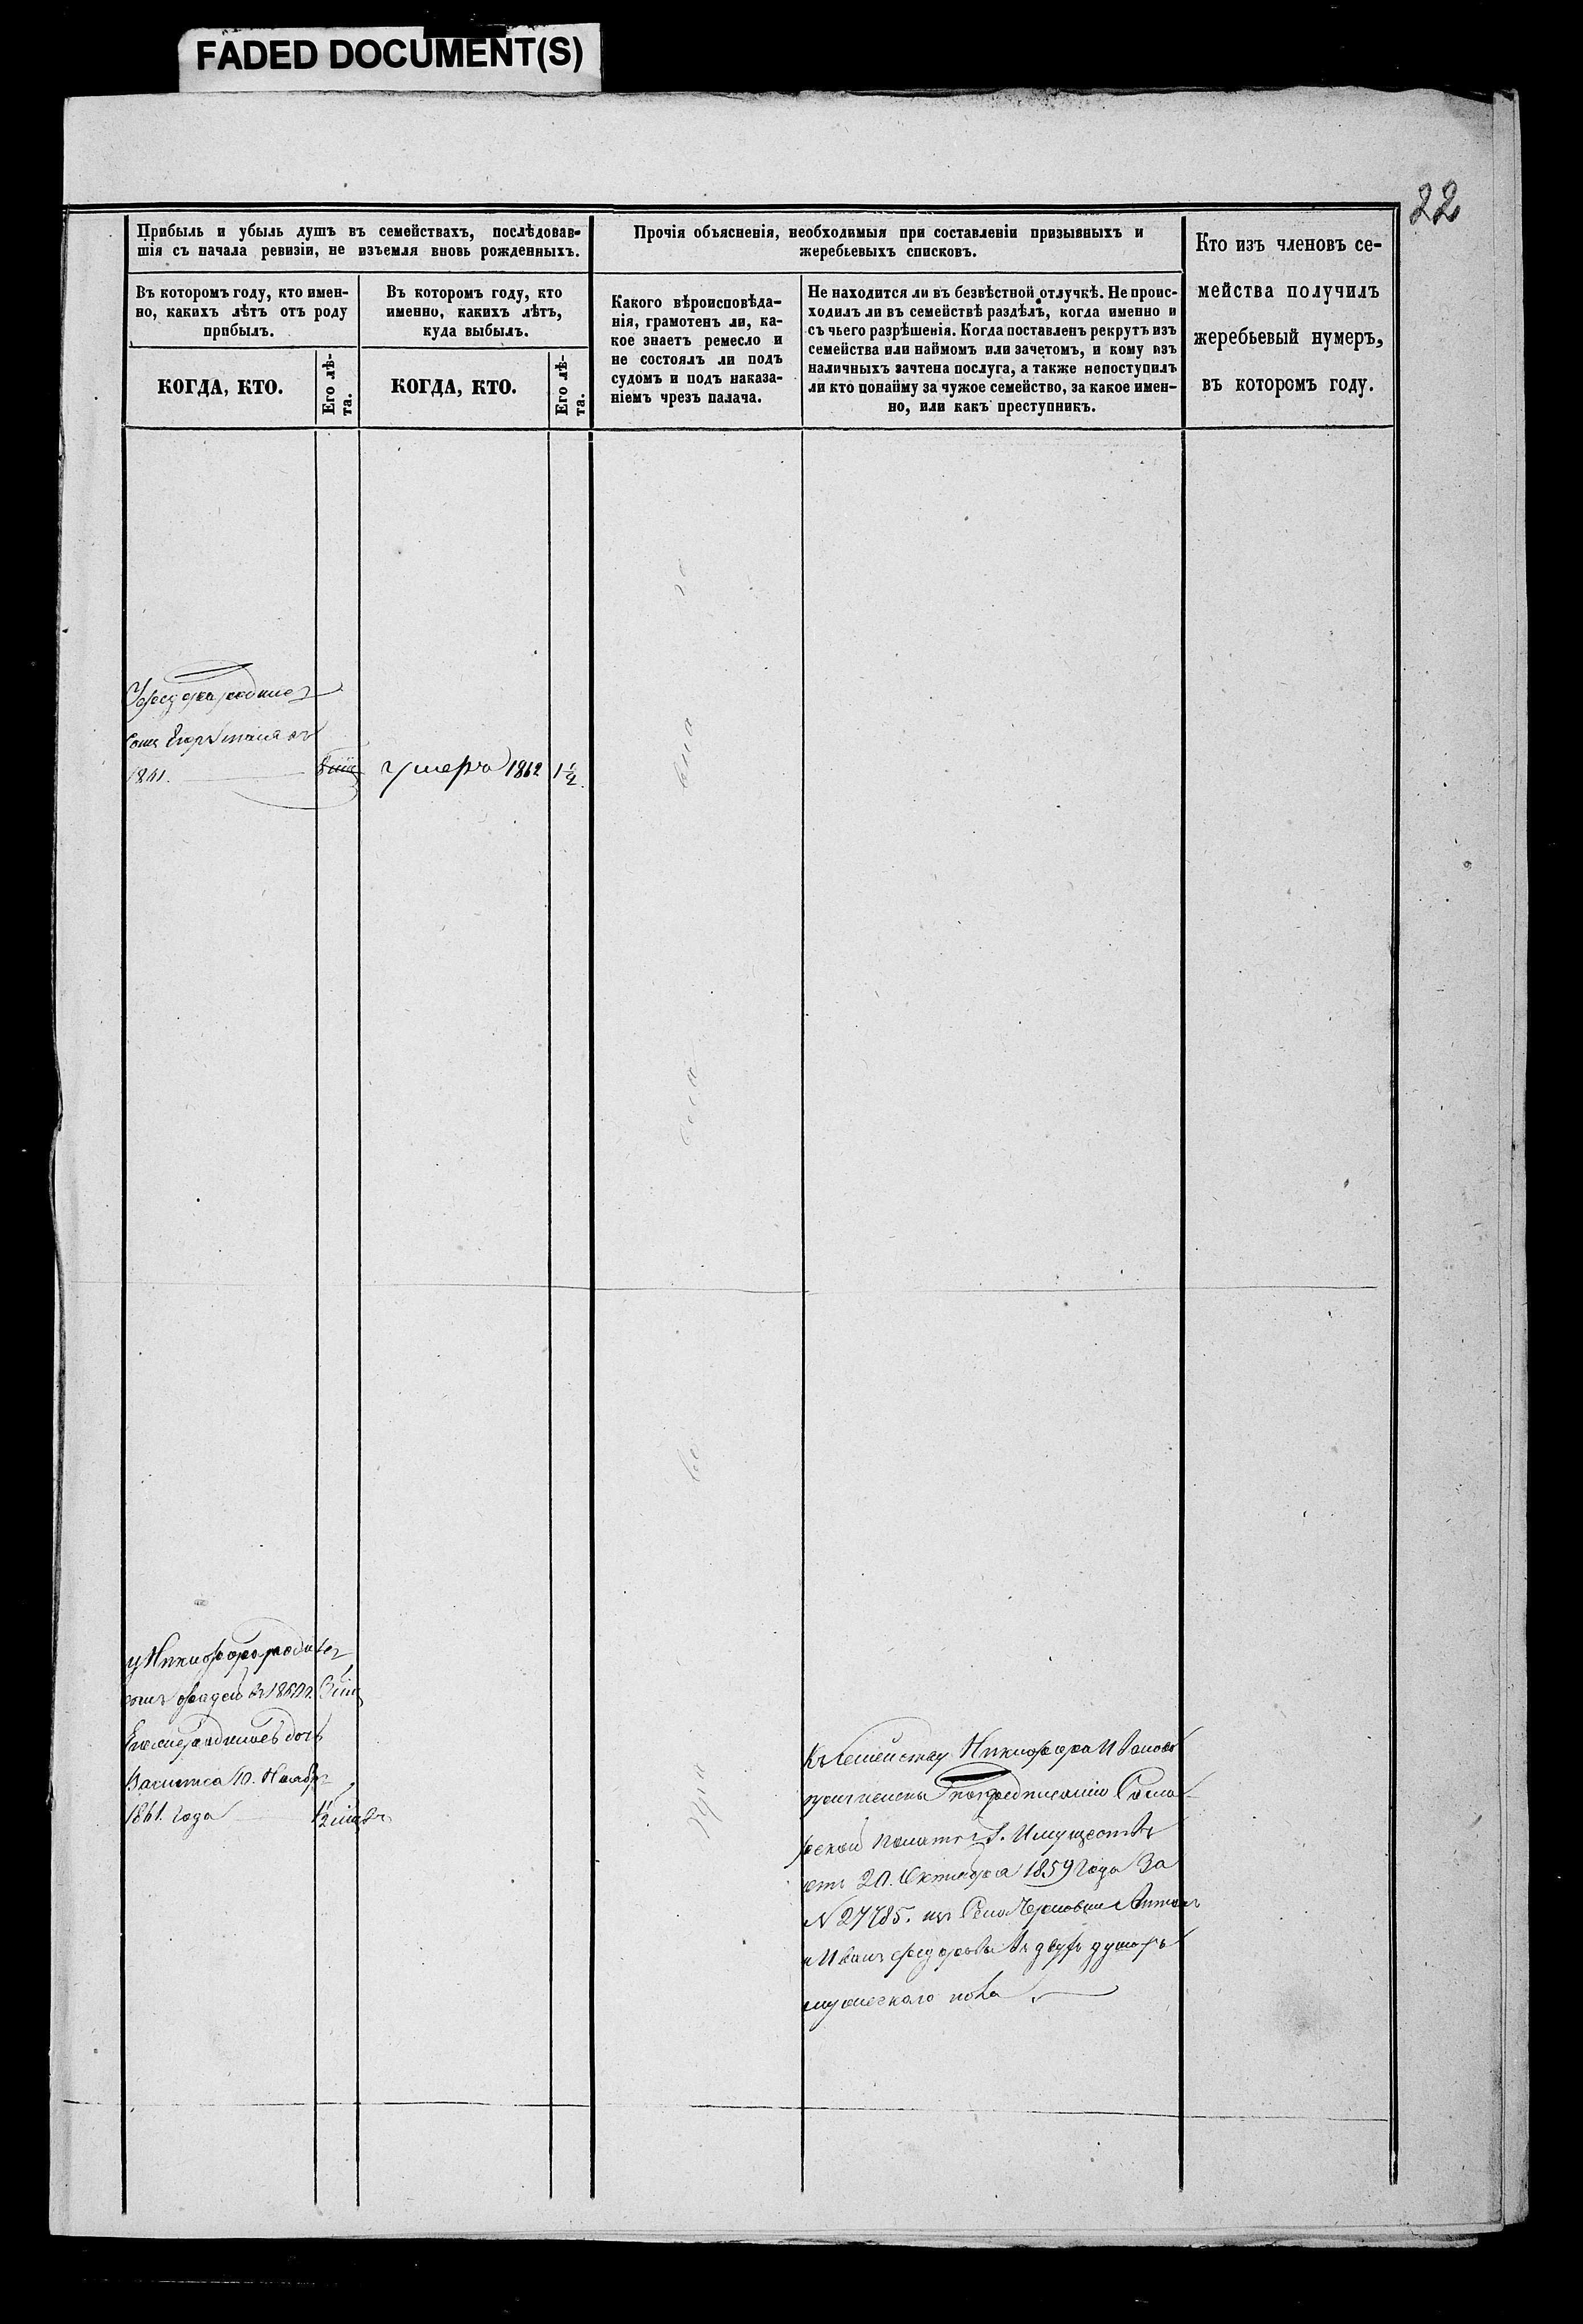 FADED DOCUMENT(S)
22
Прибыль и убыль душъ въ семействахъ, послѣдовав-
шія съ начала ревизіи, не изъемля вновь рожденныхъ.
Въ которомъ году, кто имен-
но, какихъ лѣтъ отъ роду
прибылъ.
КОГДА, КТО.
Его лѣ-
та.
Въ которомъ году, кто
именно, какихъ лѣтъ,
куда выбылъ.
КОГДА, КТО.
Его лѣ-
та.
Прочія объясненія, необходимыя при составленіи призывныхъ и
жеребьевыхъ списковъ.
Какого вѣроисповѣда-
нія, грамотенъ ли, ка-
кое знаетъ ремесло и
не состоялъ ли подъ
судомъ и подъ наказа-
ніемъ чрезъ палача.
Не находится ли въ безвѣстной отлучкѣ. Не проис-
ходилъ ли въ семействѣ раздѣлъ, когда именно и
съ чьего разрѣшенія. Когда поставленъ рекрутъ изъ
семейства или наймомъ или зачетомъ, и кому изъ
наличныхъ зачтена послуга, а также непоступилъ
ли кто понайму за чужое семейство, за какое имен-
но, или какъ преступникъ.
Кто изъ членовъ се-
мейства получилъ
жеребьевый нумеръ,
въ которомъ году.
сынъ
1861.
умеръ 1862 1½
у Никифора родился
сынъ Фадей въ
родилась дочь
10. Ноября
1861. года ½
Къ семейству Никифора Иванова
причислены по предписанію Сама-
рской Палаты Г. Имуществъ
отъ 20. Октября 1859 года За
№ 27785. изъ Села
и Иванъ Федоровы въ двухъ душахъ
мужескаго пола